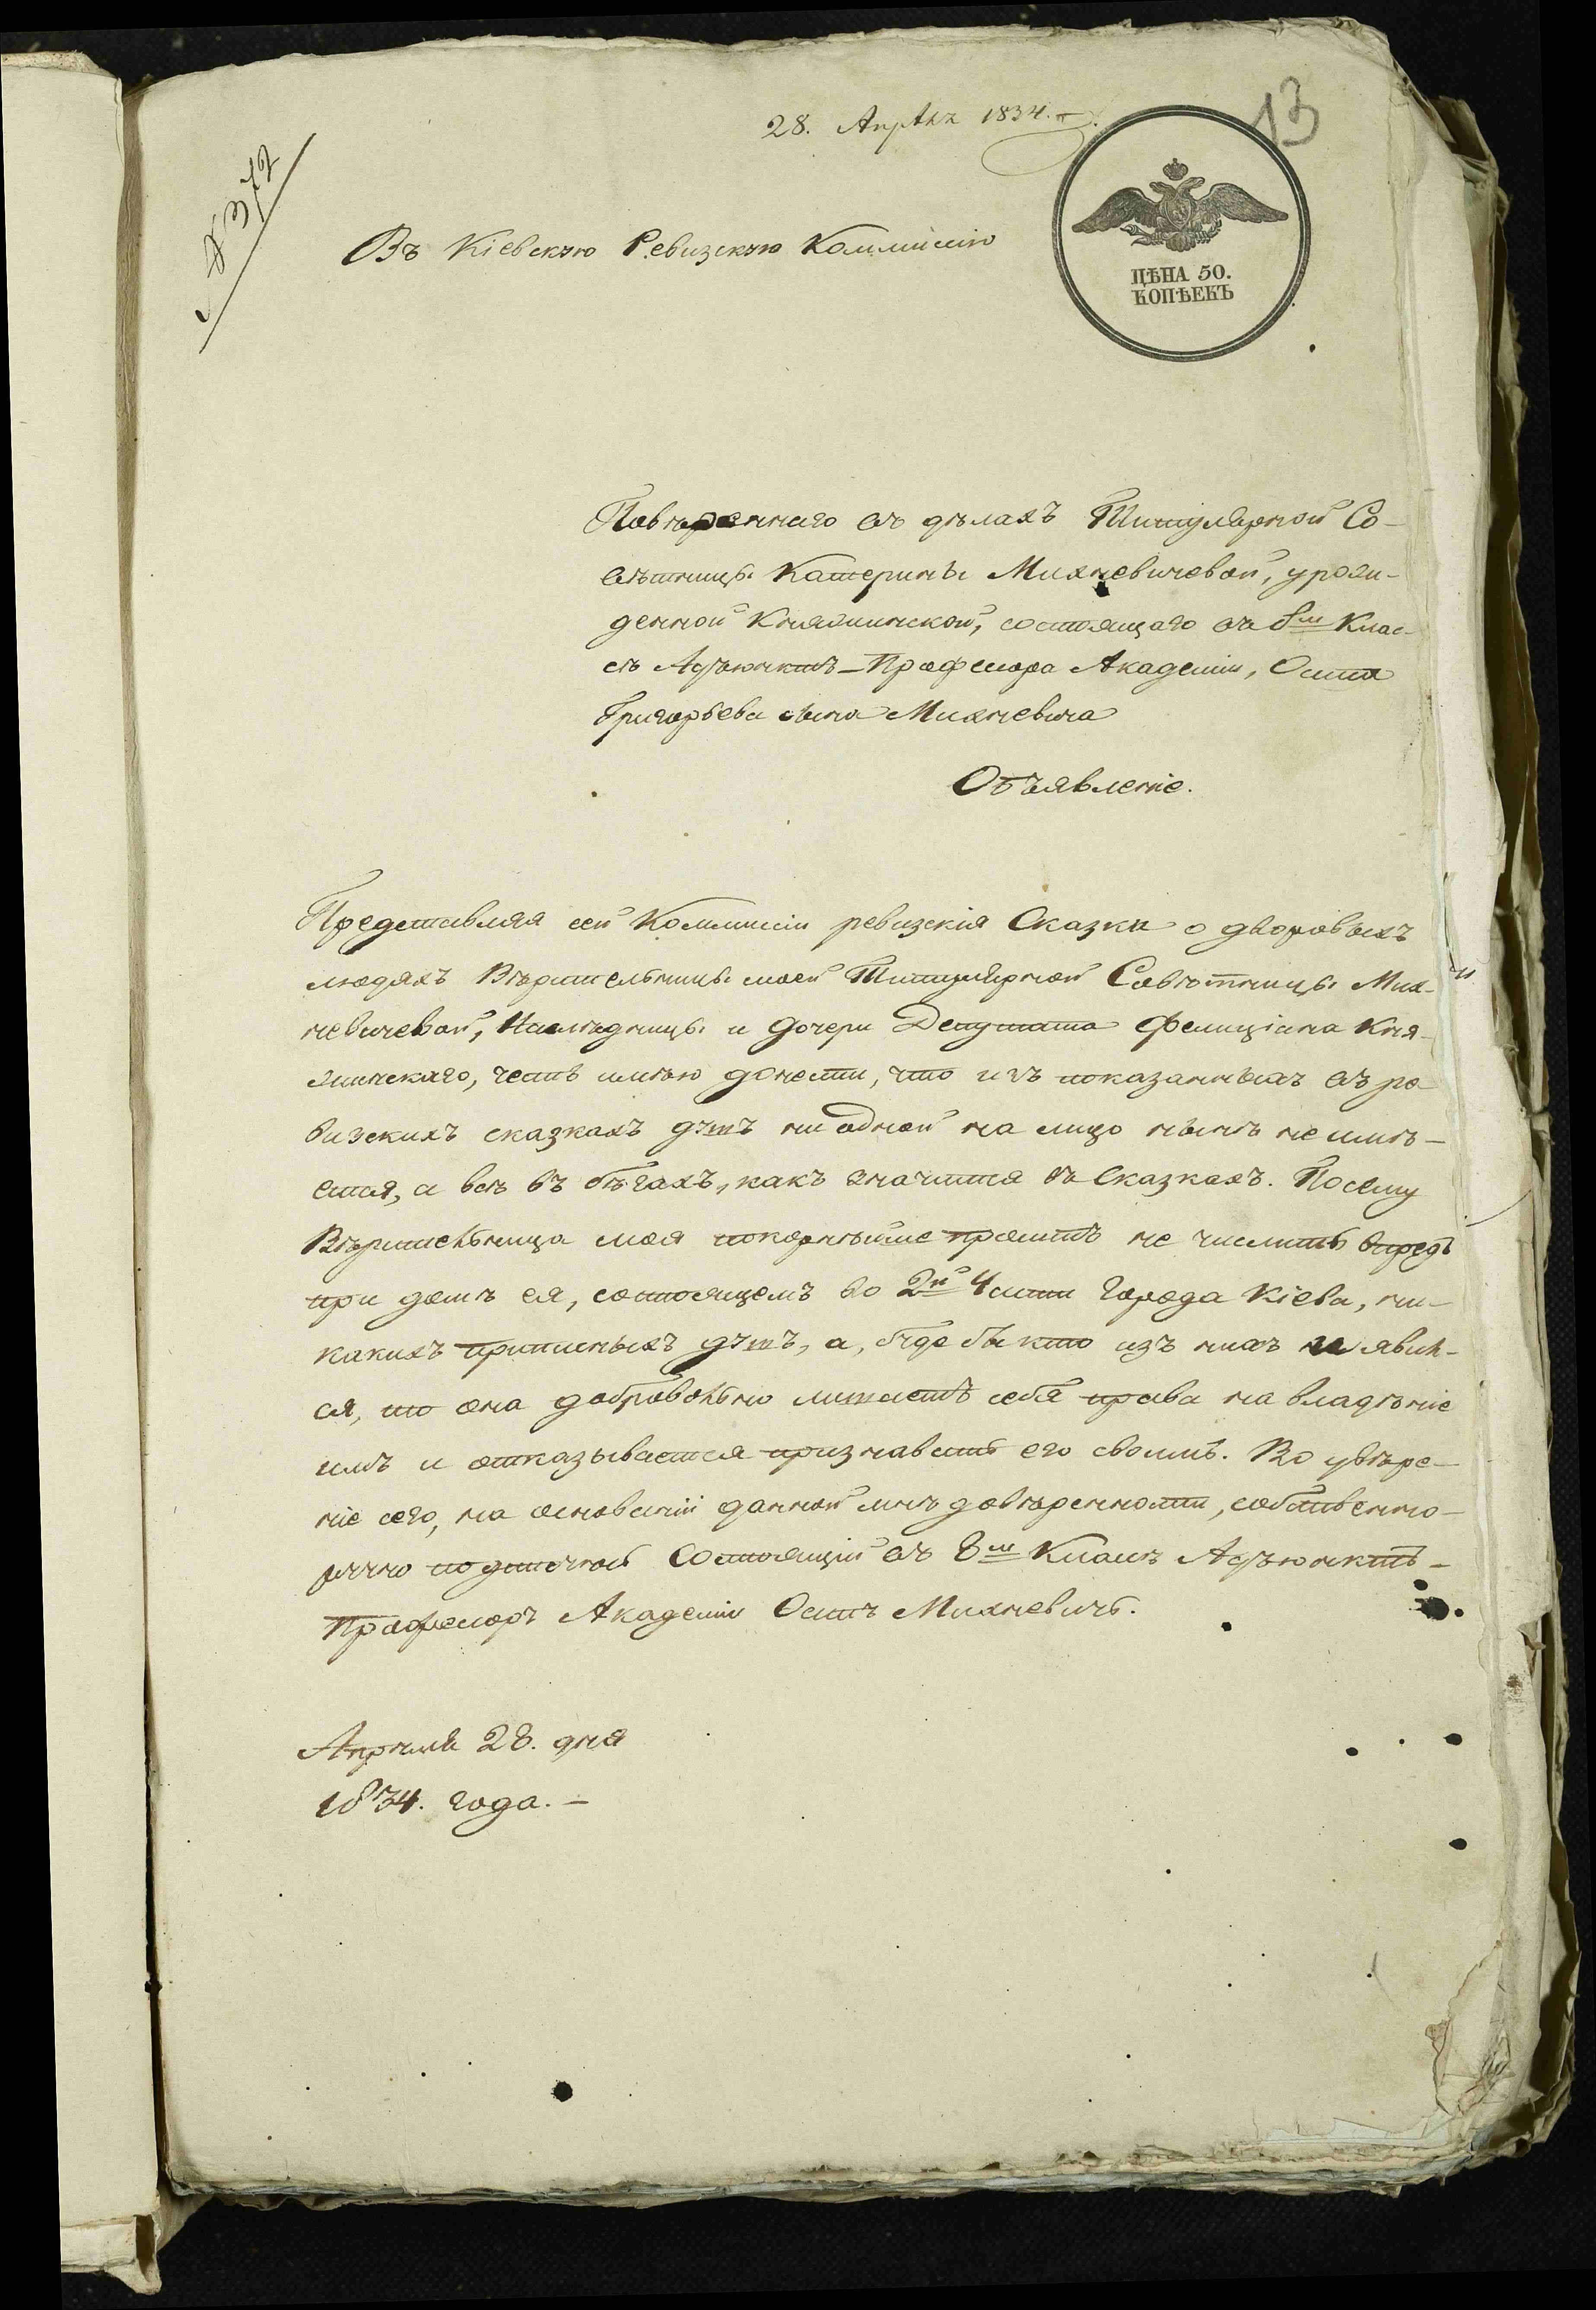 28. Апрѣля 1834.
13
№ 372
Въ Кіевскую Ревизскую Коммиссію
ЦѢНА 50.
КОПѢЕКЪ
Повѣреннаго въ дѣлахъ Титулярной Со-
вѣтницы Катерины Михневичевой, урожи-
денной Княжинской, состоящаго въ 8м Клас-
сѣ Адъюнктъ-Професора Академіи, Осипа
Григорьева сына Михневича
Объявленіе.
Представляя сей Коммиссіи ревизскія Сказки о дворовыхъ
людяхъ Вѣрительницы моей Титулярной Совѣтницы Мих-
невичевой, Наслѣдницы и дочери Депутата Фелиціана Кня-
жинскаго, честь имѣю донести, что изъ показанныхъ въ ре
визскихъ сказкахъ душъ ни одной на лицо нынѣ не имѣ-
ется, а всѣ въ бѣгахъ, какъ значится въ Сказкахъ. Посему
Вѣрительница моя покорнѣйше проситъ не числить впредь
при домѣ ея, состоящемъ во 2й Части города Кіева, ни-
какихъ приписныхъ душъ, а, буде бы кто изъ нихъ и явил-
ся, то она добровольно лишаетъ себя права на владѣніе
имъ и отказывается признавать его своимъ. Во увѣре-
ніе сего, на основаніи данной мнѣ довѣренности, собственно-
ручно подписуюсь Состоящій въ 8м Классѣ Адъюнктъ-
Професоръ Академіи Осипъ Михневичъ.
Апрѣля 28. дня
1834. года. –